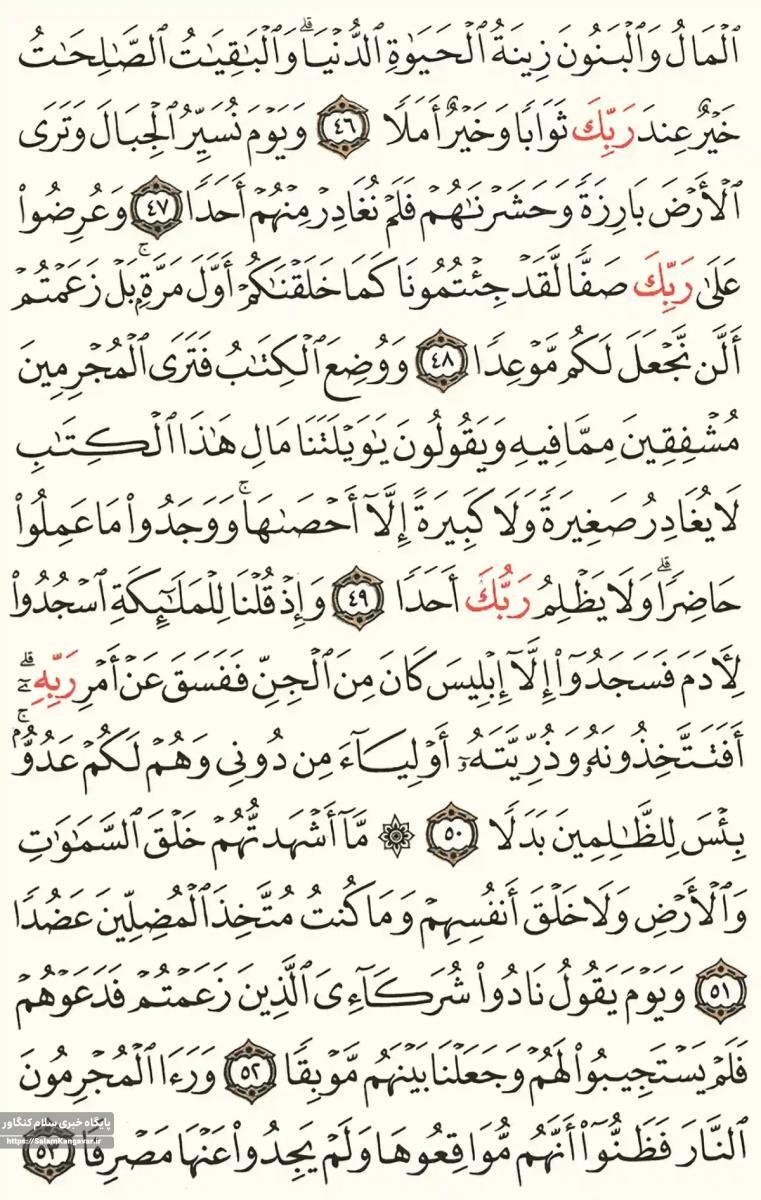 ٱلۡمَالُ وَٱلۡبَنُونَ زِينَةُ ٱلۡحَيَوٰةِ ٱلدُّنۡيَاۖ وَٱلۡبَٰقِيَٰتُ ٱلصَّٰلِحَٰتُ
خَيۡرٌ عِندَ رَبِّكَ ثَوَابٗا وَخَيۡرٌ أَمَلٗا ٤٦ وَيَوۡمَ نُسَيِّرُ ٱلۡجِبَالَ وَتَرَى
ٱلۡأَرۡضَ بَارِزَةٗ وَحَشَرۡنَٰهُمۡ فَلَمۡ نُغَادِرۡ مِنۡهُمۡ أَحَدٗا ٤٧ وَعُرِضُواْ
عَلَىٰ رَبِّكَ صَفّٗا لَّقَدۡ جِئۡتُمُونَا كَمَا خَلَقۡنَٰكُمۡ أَوَّلَ مَرَّةِۭۚ بَلۡ زَعَمۡتُمۡ
أَلَّن نَّجۡعَلَ لَكُم مَّوۡعِدٗا ٤٨ وَوُضِعَ ٱلۡكِتَٰبُ فَتَرَى ٱلۡمُجۡرِمِينَ
مُشۡفِقِينَ مِمَّا فِيهِ وَيَقُولُونَ يَٰوَيۡلَتَنَا مَالِ هَٰذَا ٱلۡكِتَٰبِ
لَا يُغَادِرُ صَغِيرَةٗ وَلَا كَبِيرَةً إِلَّآ أَحۡصَىٰهَاۚ وَوَجَدُواْ مَا عَمِلُواْ
حَاضِرٗاۗ وَلَا يَظۡلِمُ رَبُّكَ أَحَدٗا ٤٩ وَإِذۡ قُلۡنَا لِلۡمَلَٰٓئِكَةِ ٱسۡجُدُواْ
لِأٓدَمَ فَسَجَدُوٓاْ إِلَّآ إِبۡلِيسَ كَانَ مِنَ ٱلۡجِنِّ فَفَسَقَ عَنۡ أَمۡرِ رَبِّهِۦٓۗ
أَفَتَتَّخِذُونَهُۥ وَذُرِّيَّتَهُۥٓ أَوۡلِيَآءَ مِن دُونِي وَهُمۡ لَكُمۡ عَدُوُّۢۚ
بِئۡسَ لِلظَّٰلِمِينَ بَدَلٗا ٥٠ ۞ مَّآ أَشۡهَدتُّهُمۡ خَلۡقَ ٱلسَّمَٰوَٰتِ
وَٱلۡأَرۡضِ وَلَا خَلۡقَ أَنفُسِهِمۡ وَمَا كُنتُ مُتَّخِذَ ٱلۡمُضِلِّينَ عَضُدٗا
٥١ وَيَوۡمَ يَقُولُ نَادُواْ شُرَكَآءِيَ ٱلَّذِينَ زَعَمۡتُمۡ فَدَعَوۡهُمۡ
فَلَمۡ يَسۡتَجِيبُواْ لَهُمۡ وَجَعَلۡنَا بَيۡنَهُم مَّوۡبِقٗا ٥٢ وَرَءَا ٱلۡمُجۡرِمُونَ
ٱلنَّارَ فَظَنُّوٓاْ أَنَّهُم مُّوَاقِعُوهَا وَلَمۡ يَجِدُواْ عَنۡهَا مَصۡرِفٗا ٥٣
پایگاه خبری سلام کنگاور
https://SalamKangavar.ir